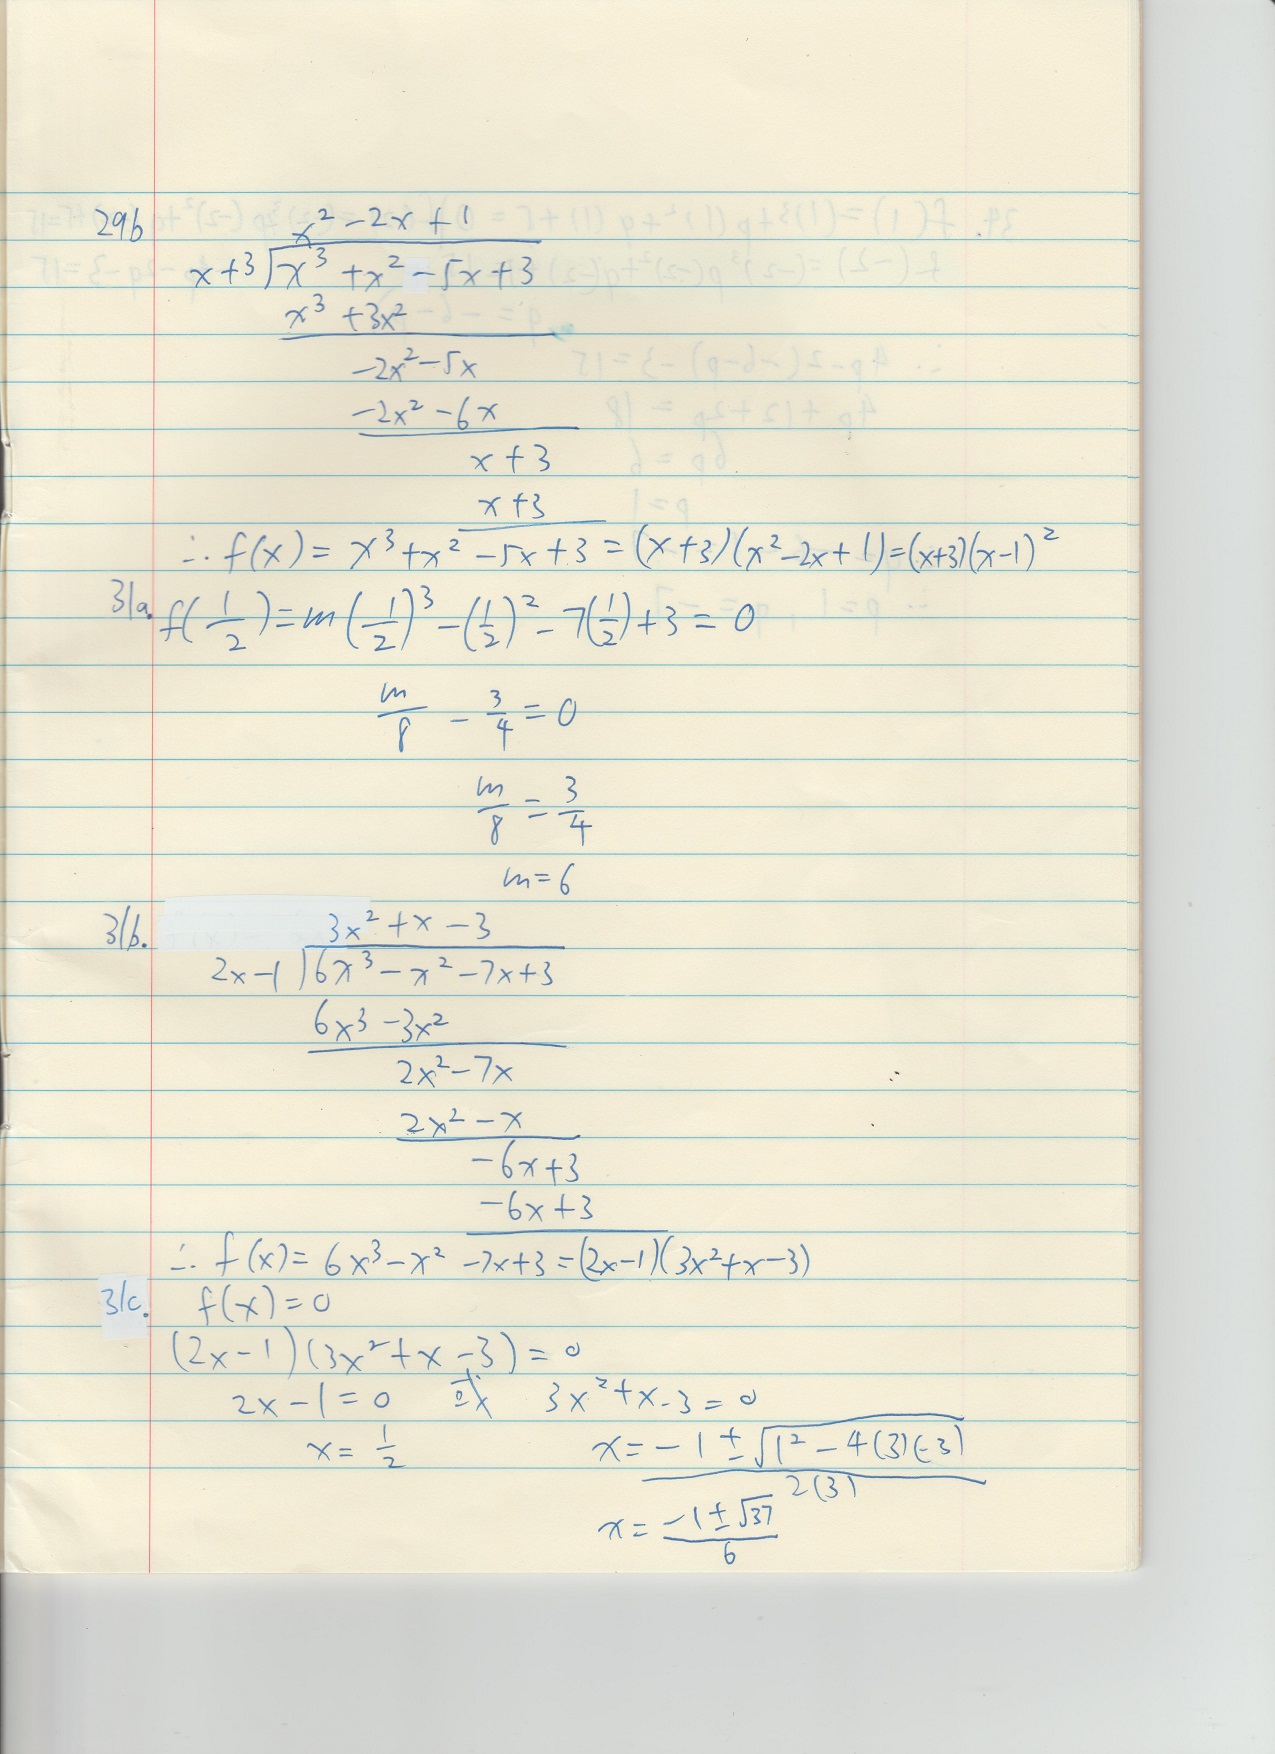 29b x² - 2x + 1
x + 3 ) x³ + x² - 5x + 3
x³ + 3x²
-2x² - 5x
-2x² - 6x
x + 3
x + 3
∴ f(x) = x³ + x² - 5x + 3 = (x+3)(x² - 2x + 1) = (x+3)(x-1)²
31a. f(1/2) = m(1/2)³ - (1/2)² - 7(1/2) + 3 = 0
m/8 - 3/4 = 0
m/8 = 3/4
m = 6
31b. 3x² + x - 3
2x - 1 ) 6x³ - x² - 7x + 3
6x³ - 3x²
2x² - 7x
2x² - x
-6x + 3
-6x + 3
∴ f(x) = 6x³ - x² - 7x + 3 = (2x-1)(3x² + x - 3)
31c. f(x) = 0
(2x - 1)(3x² + x - 3) = 0
2x - 1 = 0 或 3x² + x - 3 = 0
x = 1/2 x = -1 ± √1² - 4(3)(-3) / 2(3)
x = -1 ± √37 / 6